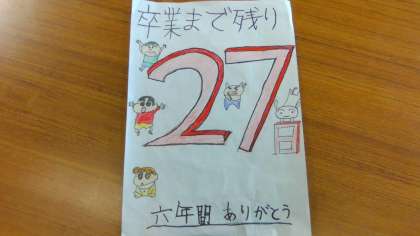 卒業まで残り
27日
六年間 ありがとう